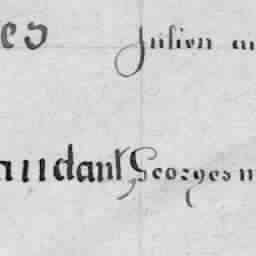 es Julien au
audant, Georges m